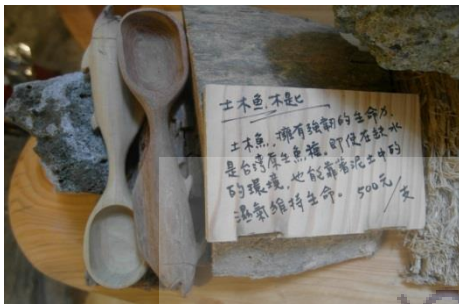 土木魚．木匙
土木魚，擁有強韌的生命力，
是台灣原生魚種，即便在缺水
的環境，也能靠著泥土中的
濕氣維持生命。 500元/支